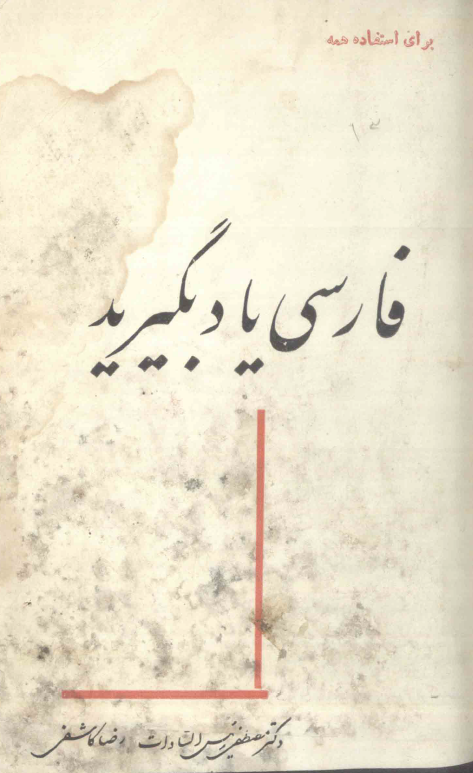 برای استفاده همه
۱۳
فارسی یاد بگیرید
دکتر مصطفی رئیس السادات رضا کاشفی